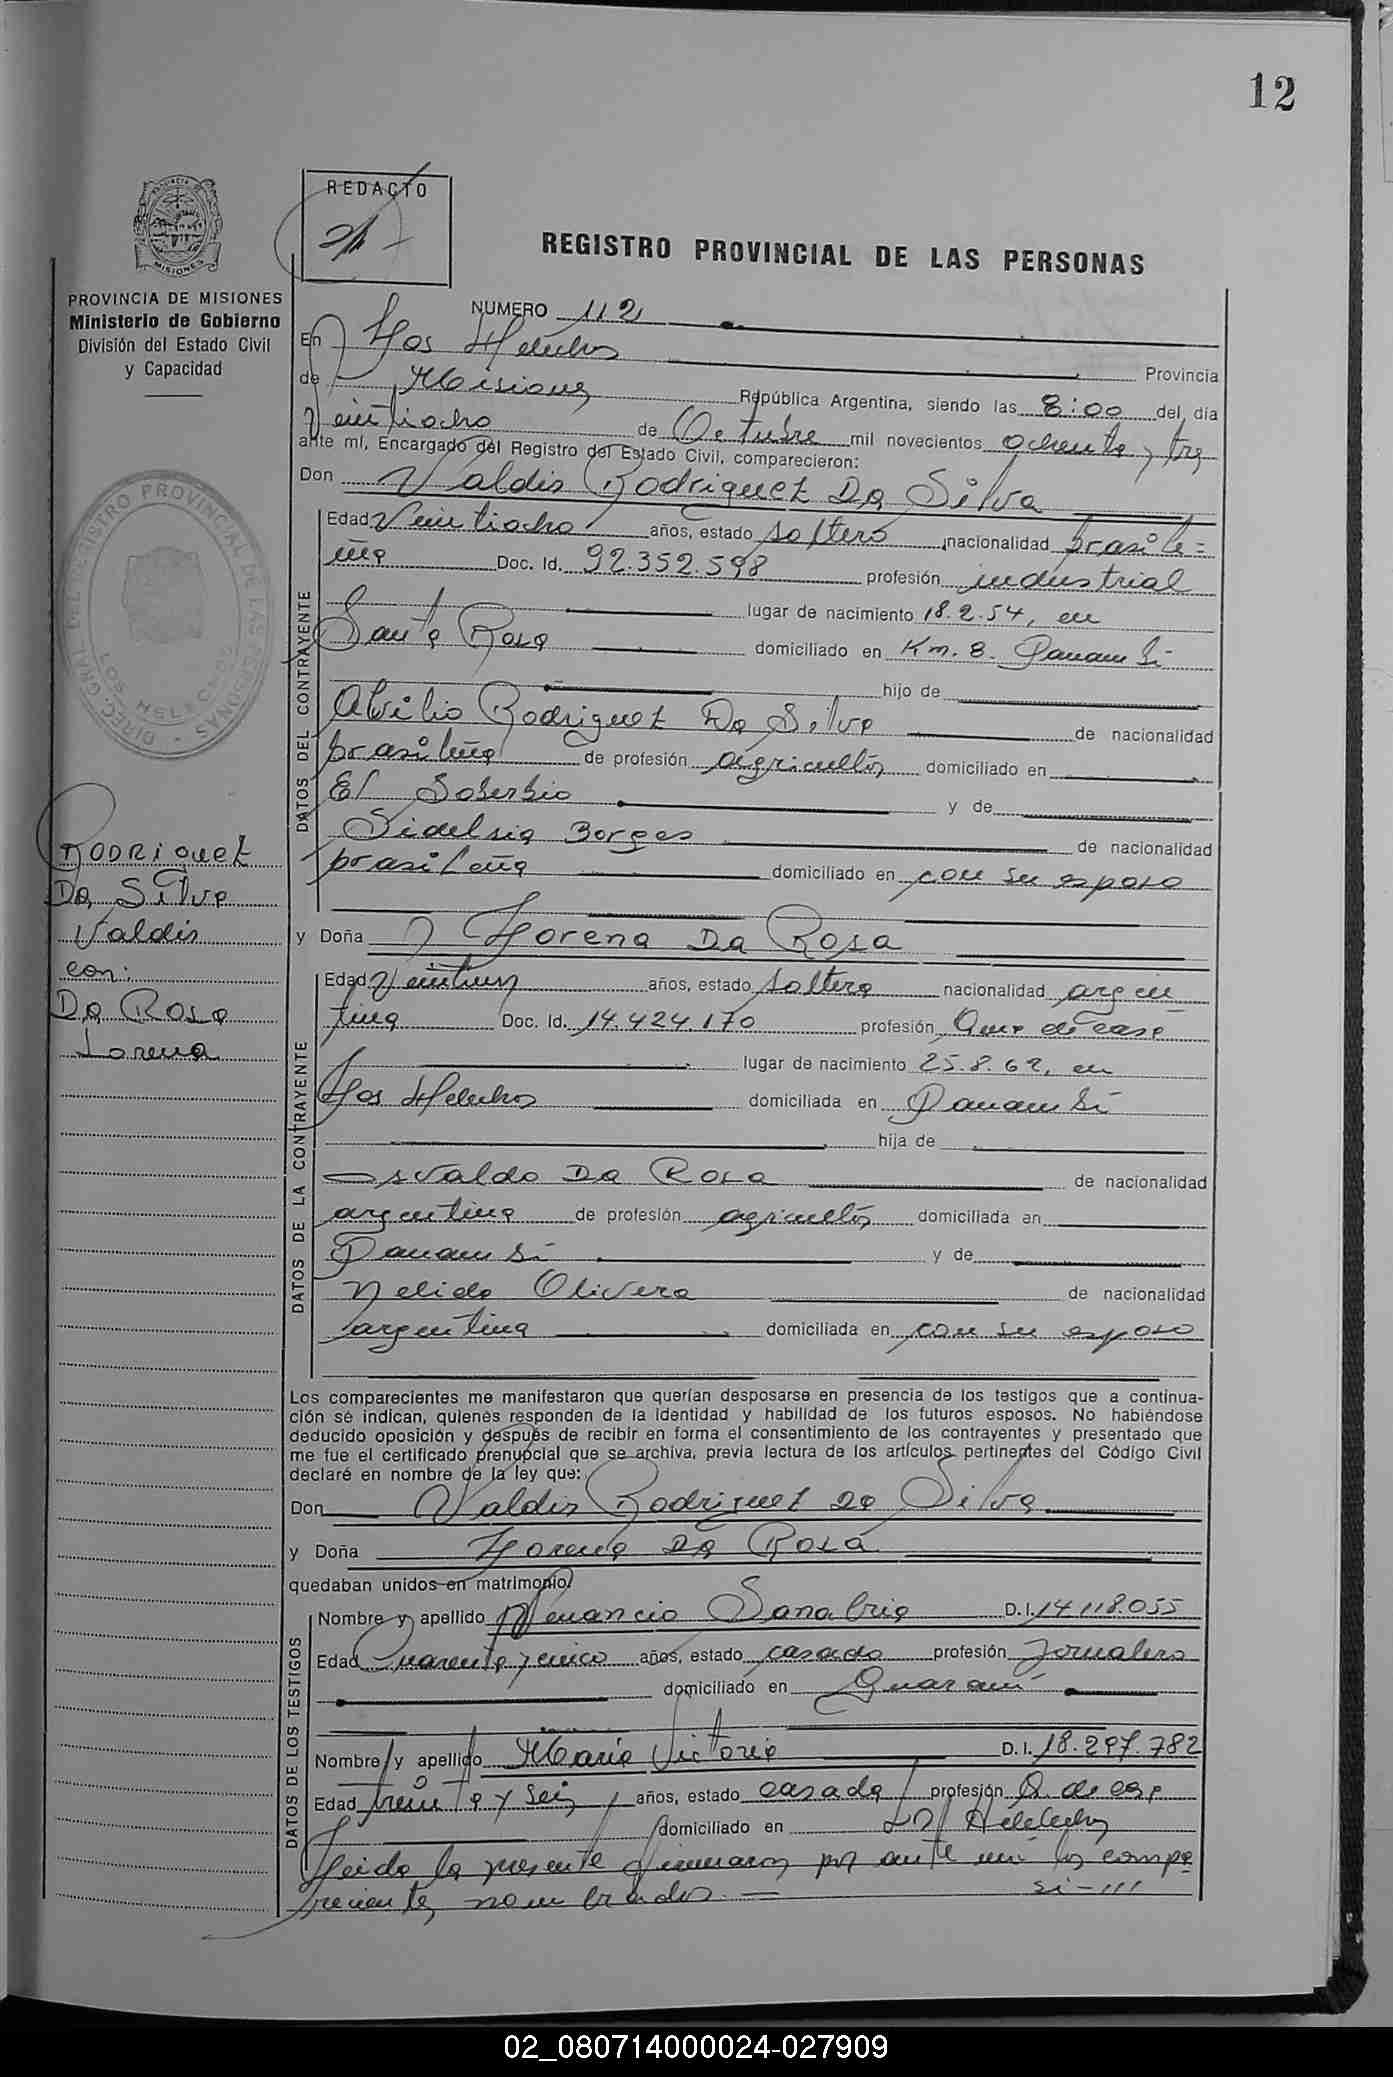 12
REDACTO
REGISTRO PROVINCIAL DE LAS PERSONAS
MISIONES
PROVINCIA DE MISIONES
Ministerio de Gobierno
División del Estado Civil
y Capacidad
NUMERO 112
En Los Helechos
Provincia
de Misiones República Argentina, siendo las 8:00 del día
Veintiocho de Octubre mil novecientos ochenta y tres
ante mí, Encargado del Registro del Estado Civil, comparecieron:
Don Valdis Rodriguez Da Silva
DIREC. GRAL. DEL REGISTRO PROVINCIAL DE LAS PERSONAS
LOS HELECHOS
Rodriguez
Da Silva
Valdis
con:
Da Rosa
Lorena
DATOS DEL CONTRAYENTE
Edad Veintiocho años, estado soltero nacionalidad brasile=
ña Doc. Id. 92.352.598 profesión industrial
lugar de nacimiento 18.2.54, en
Santa Rosa domiciliado en Km. 8. Panambí
hijo de
Abilio Rodriguez Da Silva de nacionalidad
brasileña de profesión agricultor domiciliado en
El Soberbio y de
Sidelsia Borges de nacionalidad
brasileña domiciliado en con su esposo
y Doña Lorena Da Rosa
DATOS DE LA CONTRAYENTE
Edad Veintiun años, estado soltera nacionalidad argen
tina Doc. Id. 14.424.170 profesión Ama de casa
lugar de nacimiento 25.8.62, en
Los Helechos domiciliada en Panambí
hija de
Osvaldo Da Rosa de nacionalidad
argentina de profesión agricultor domiciliada en
Panambí y de
Nelida Olivera de nacionalidad
argentina domiciliada en con su esposo
Los comparecientes me manifestaron que querían desposarse en presencia de los testigos que a continua-
ción se indican, quienes responden de la identidad y habilidad de los futuros esposos. No habiéndose
deducido oposición y después de recibir en forma el consentimiento de los contrayentes y presentado que
me fue el certificado prenupcial que se archiva, previa lectura de los artículos pertinentes del Código Civil
declaré en nombre de la ley que:
Don Valdis Rodriguez Da Silva
y Doña Lorena Da Rosa
quedaban unidos en matrimonio
DATOS DE LOS TESTIGOS
Nombre y apellido Venancio Sanabria D.I. 14118.055
Edad Cuarenta y cinco años, estado casado profesión Jornalero
domiciliado en Guaraní
Nombre y apellido María Victoria D.I. 18.297.782
Edad treinta y seis años, estado casada profesión A. de casa
domiciliado en Los Helechos
Leida la presente firmaron por ante mi los compa
recientes nombrados. si-///
02_080714000024-027909